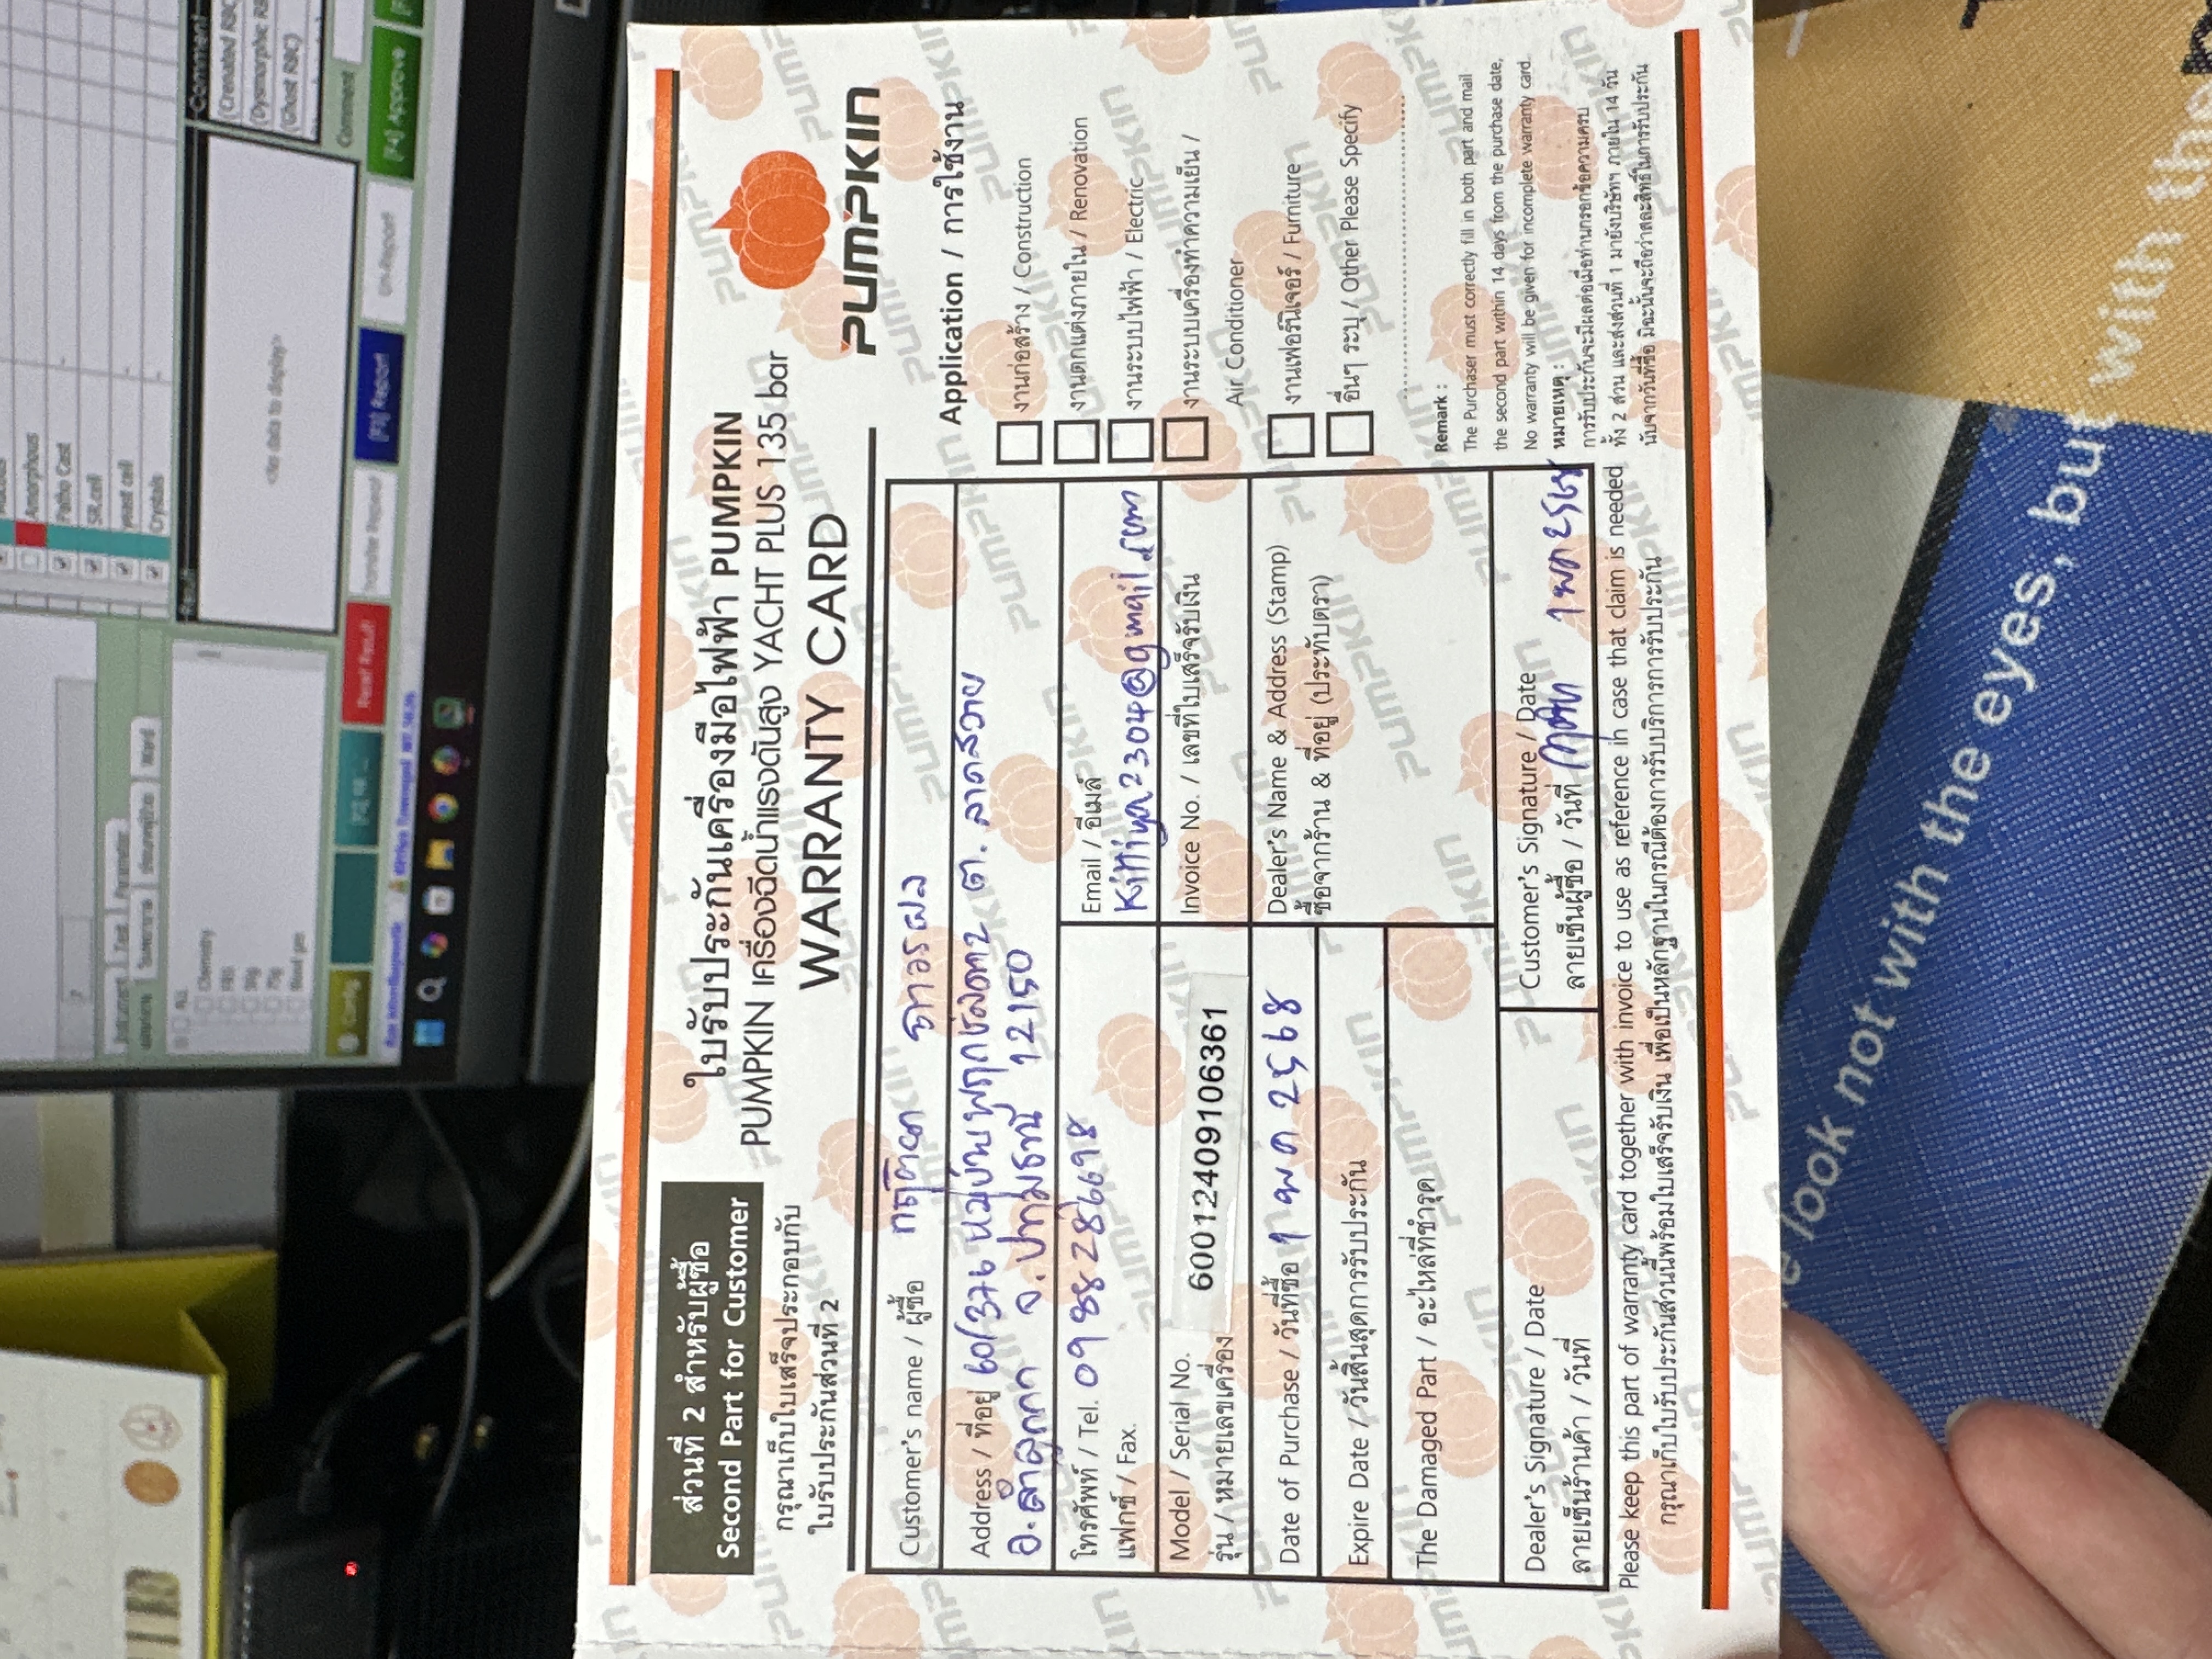 ส่วนที่ 2 สำหรับผู้ซื้อ
Second Part for Customer
กรุณาเก็บใบเสร็จประกอบกับ
ใบรับประกันส่วนที่ 2
ใบรับประกันเครื่องมือไฟฟ้า PUMPKIN
PUMPKIN เครื่องฉีดน้ำแรงดันสูง YACHT PLUS 135 bar
WARRANTY CARD
PUMPKIN
Customer's name / ผู้ซื้อ กฤติยด ถาวรผล
Address / ที่อยู่ 60/376 หมู่บ้านพฤกษ์ลดา2 ต. ลาดสวาย
อ.ลำลูกกา จ.ปทุมธานี 12150
โทรศัพท์ / Tel. 0988286698
แฟกซ์ / Fax.
Email / อีเมล์
Kittiyot2304@gmail.com
Model / Serial No.
รุ่น / หมายเลขเครื่อง 6001240910636​1
Invoice No. / เลขที่ใบเสร็จรับเงิน
Date of Purchase / วันที่ซื้อ 1 พค 2568
Dealer's Name & Address (Stamp)
ซื้อจากร้าน & ที่อยู่ (ประทับตรา)
Expire Date / วันสิ้นสุดการรับประกัน
The Damaged Part / อะไหล่ที่ชำรุด
Dealer's Signature / Date
ลายเซ็นร้านค้า / วันที่
Customer's Signature / Date
ลายเซ็นผู้ซื้อ / วันที่ 1 พค 2568
Application / การใช้งาน
งานก่อสร้าง / Construction
งานตกแต่งภายใน / Renovation
งานระบบไฟฟ้า / Electric
งานระบบเครื่องทำความเย็น /
Air Conditioner
งานเฟอร์นิเจอร์ / Furniture
อื่นๆ ระบุ / Other Please Specify
Remark :
The Purchaser must correctly fill in both part and mail
the second part within 14 days from the purchase date,
No warranty will be given for incomplete warranty card.
หมายเหตุ :
การรับประกันจะมีผลต่อเมื่อท่านกรอกข้อความครบ
ทั้ง 2 ส่วน และส่งส่วนที่ 1 มายังบริษัทฯ ภายใน 14 วัน
นับจากวันที่ซื้อ มิฉะนั้นจะถือว่าสละสิทธิ์ในการรับประกัน
Please keep this part of warranty card together with invoice to use as reference in case that claim is needed
กรุณาเก็บใบรับประกันส่วนนี้พร้อมใบเสร็จรับเงิน เพื่อเป็นหลักฐานในกรณีต้องการรับบริการการรับประกัน
look not with the eyes, but with the
Comment
(Crenated RBC)
(Ghost RBC)
Comment
Amorphous
Patho Cast
SR.cell
yeast cell
Crystals
Result
<No data to display>
[F4] Approve
Un-Report
[F3] Report
Reset Result
Config
Chemistry